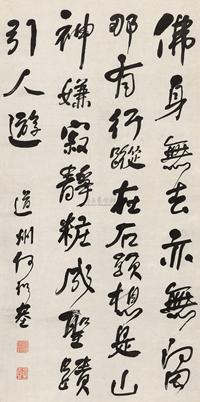 佛身無去亦無留
那有行蹤在石頭想是山
神嫌寂靜粧成聖蹟
引人遊
道州何紹基